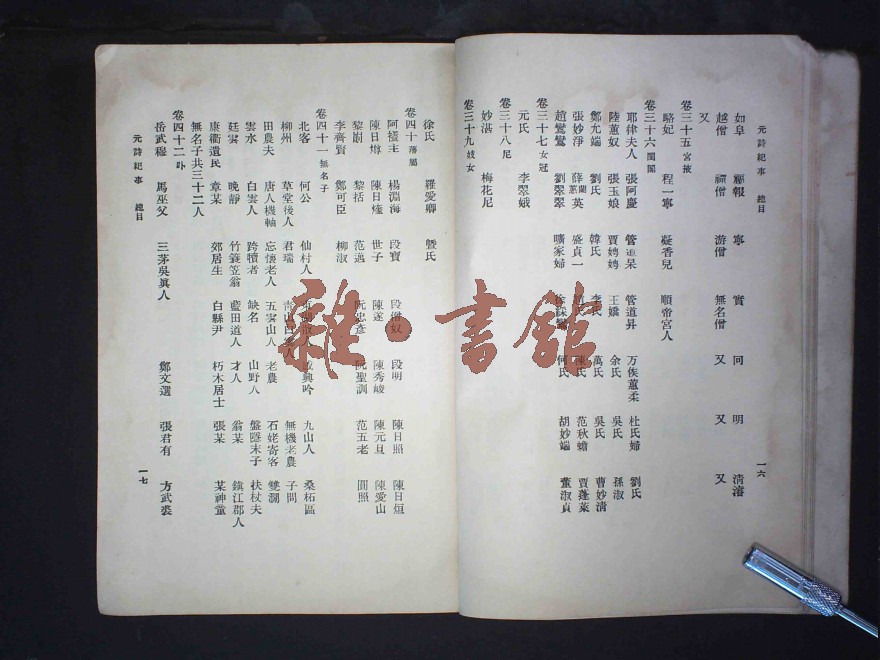 元詩紀事 總目
一六
如皐 禪報 寧 實 同 明 清濬
越僧 禪僧 游僧 無名僧 又 又 又
又
卷三十五 宮掖
駱妃 程一寧 凝香兒 順帝宮人
卷三十六 閨閣
耶律夫人 張阿慶 管道杲 管道昇 万俟蕙柔 杜氏婦 劉氏
陸蕙奴 張玉娘 賈娉娉 王嬌 余氏 吳氏 孫淑
鄭允端 劉氏 韓氏 李氏 萬氏 吳氏 曹妙清
張妙淨 薛蘭英 蕙英 盛貞一 氏 陳氏 范秋蟾 賈蓬萊
趙鸞鸞 劉翠翠 曠家婦 徐 何氏 胡妙端 董淑貞
卷三十七 女冠
元氏 李翠娥
卷三十八 尼
妙湛 梅花尼
卷三十九 妓女
徐氏 羅愛卿 曁氏
卷四十 藩屬
阿𥠇主 楊淵海 段寶 段僧奴 段明 陳日照 陳日烜
陳日燇 陳日烽 世子 陳遂 陳秀峻 陳元旦 陳愛山
黎崱 黎括 范邁 阮忠彥 阮聖訓 范五老 圓照
李齊賢 鄭可臣 柳淑
卷四十一 無名子
北客 何公 仙村人 人 感興吟 九山人 桑柘區
柳州 草堂後人 君瑞 青山白雲人 無機老農 子問
田農夫 唐人機軸 忘懷老人 五雲山人 老農 石姥寄客 雙㵎
雲水 白雲人 跨犢者 缺名 山野人 盤隱末子 扶杖夫
廷雲 晚靜 竹簑笠翁 藍田道人 才人 翁某 鎭江郡人
康衢遺民 章某 郊居生 白縣尹 朽木居士 張某 某神童
無名子共三十二人
卷四十二 卟
岳武穆 馬巫父 三茅吳眞人 鄭文選 張君有 方武裘
元詩紀事 總目
一七
雜·書館